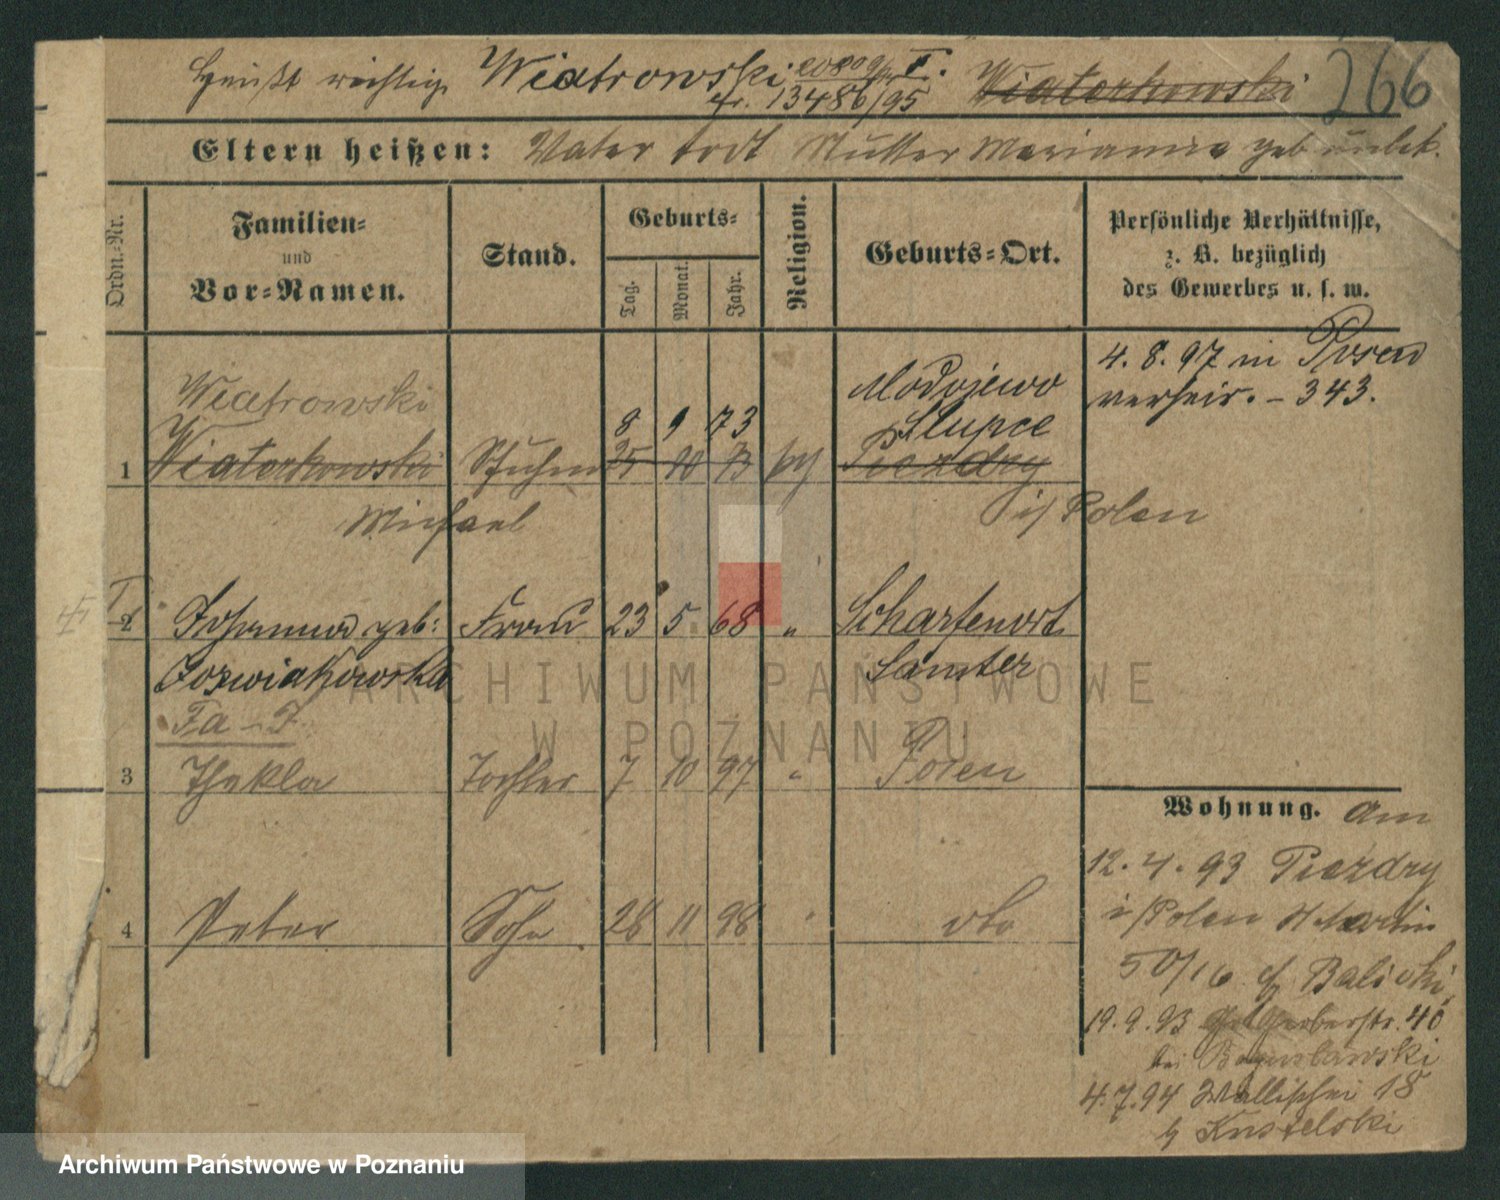 Heißt richtig Wiatrowski I. Wiatorkowski 266
fr. 13486/95
Eltern heißen: Vater todt Mutter Marianna geb unbek.
Ordn.-Nr.
Familien-
und
Vor-Namen.
Stand.
Geburts-
Tag.
Monat.
Jahr.
Religion.
Geburts-Ort.
Persönliche Verhältnisse,
z. B. bezüglich
des Gewerbes u. s. w.
4. 8. 97 in Posen
verheir. - 343.
Wiatrowski 8 9 73 Modojewo
Slupce
1 Wiatorkowski 25 10 73 Piezdry
Michael i/ Polen
2 Johanna geb: Frau 23 5 68 " Scharfenort
Jozwiakowska Samter
Fa - I
3 Thekla Tochter 7 10 97 " Posen
4 Peter Sohn 28 11 98 " dto
Wohnung. am
12. 4. 93 Piezdry
i/Polen St Martin
50/16 b/ Balicki
19. 9. 93 Gr Gerberstr. 40
bei Boguslawski
4. 7. 94 Wallischei 18
b/
ARCHIWUM PAŃSTWOWE
W POZNANIU
Archiwum Państwowe w Poznaniu